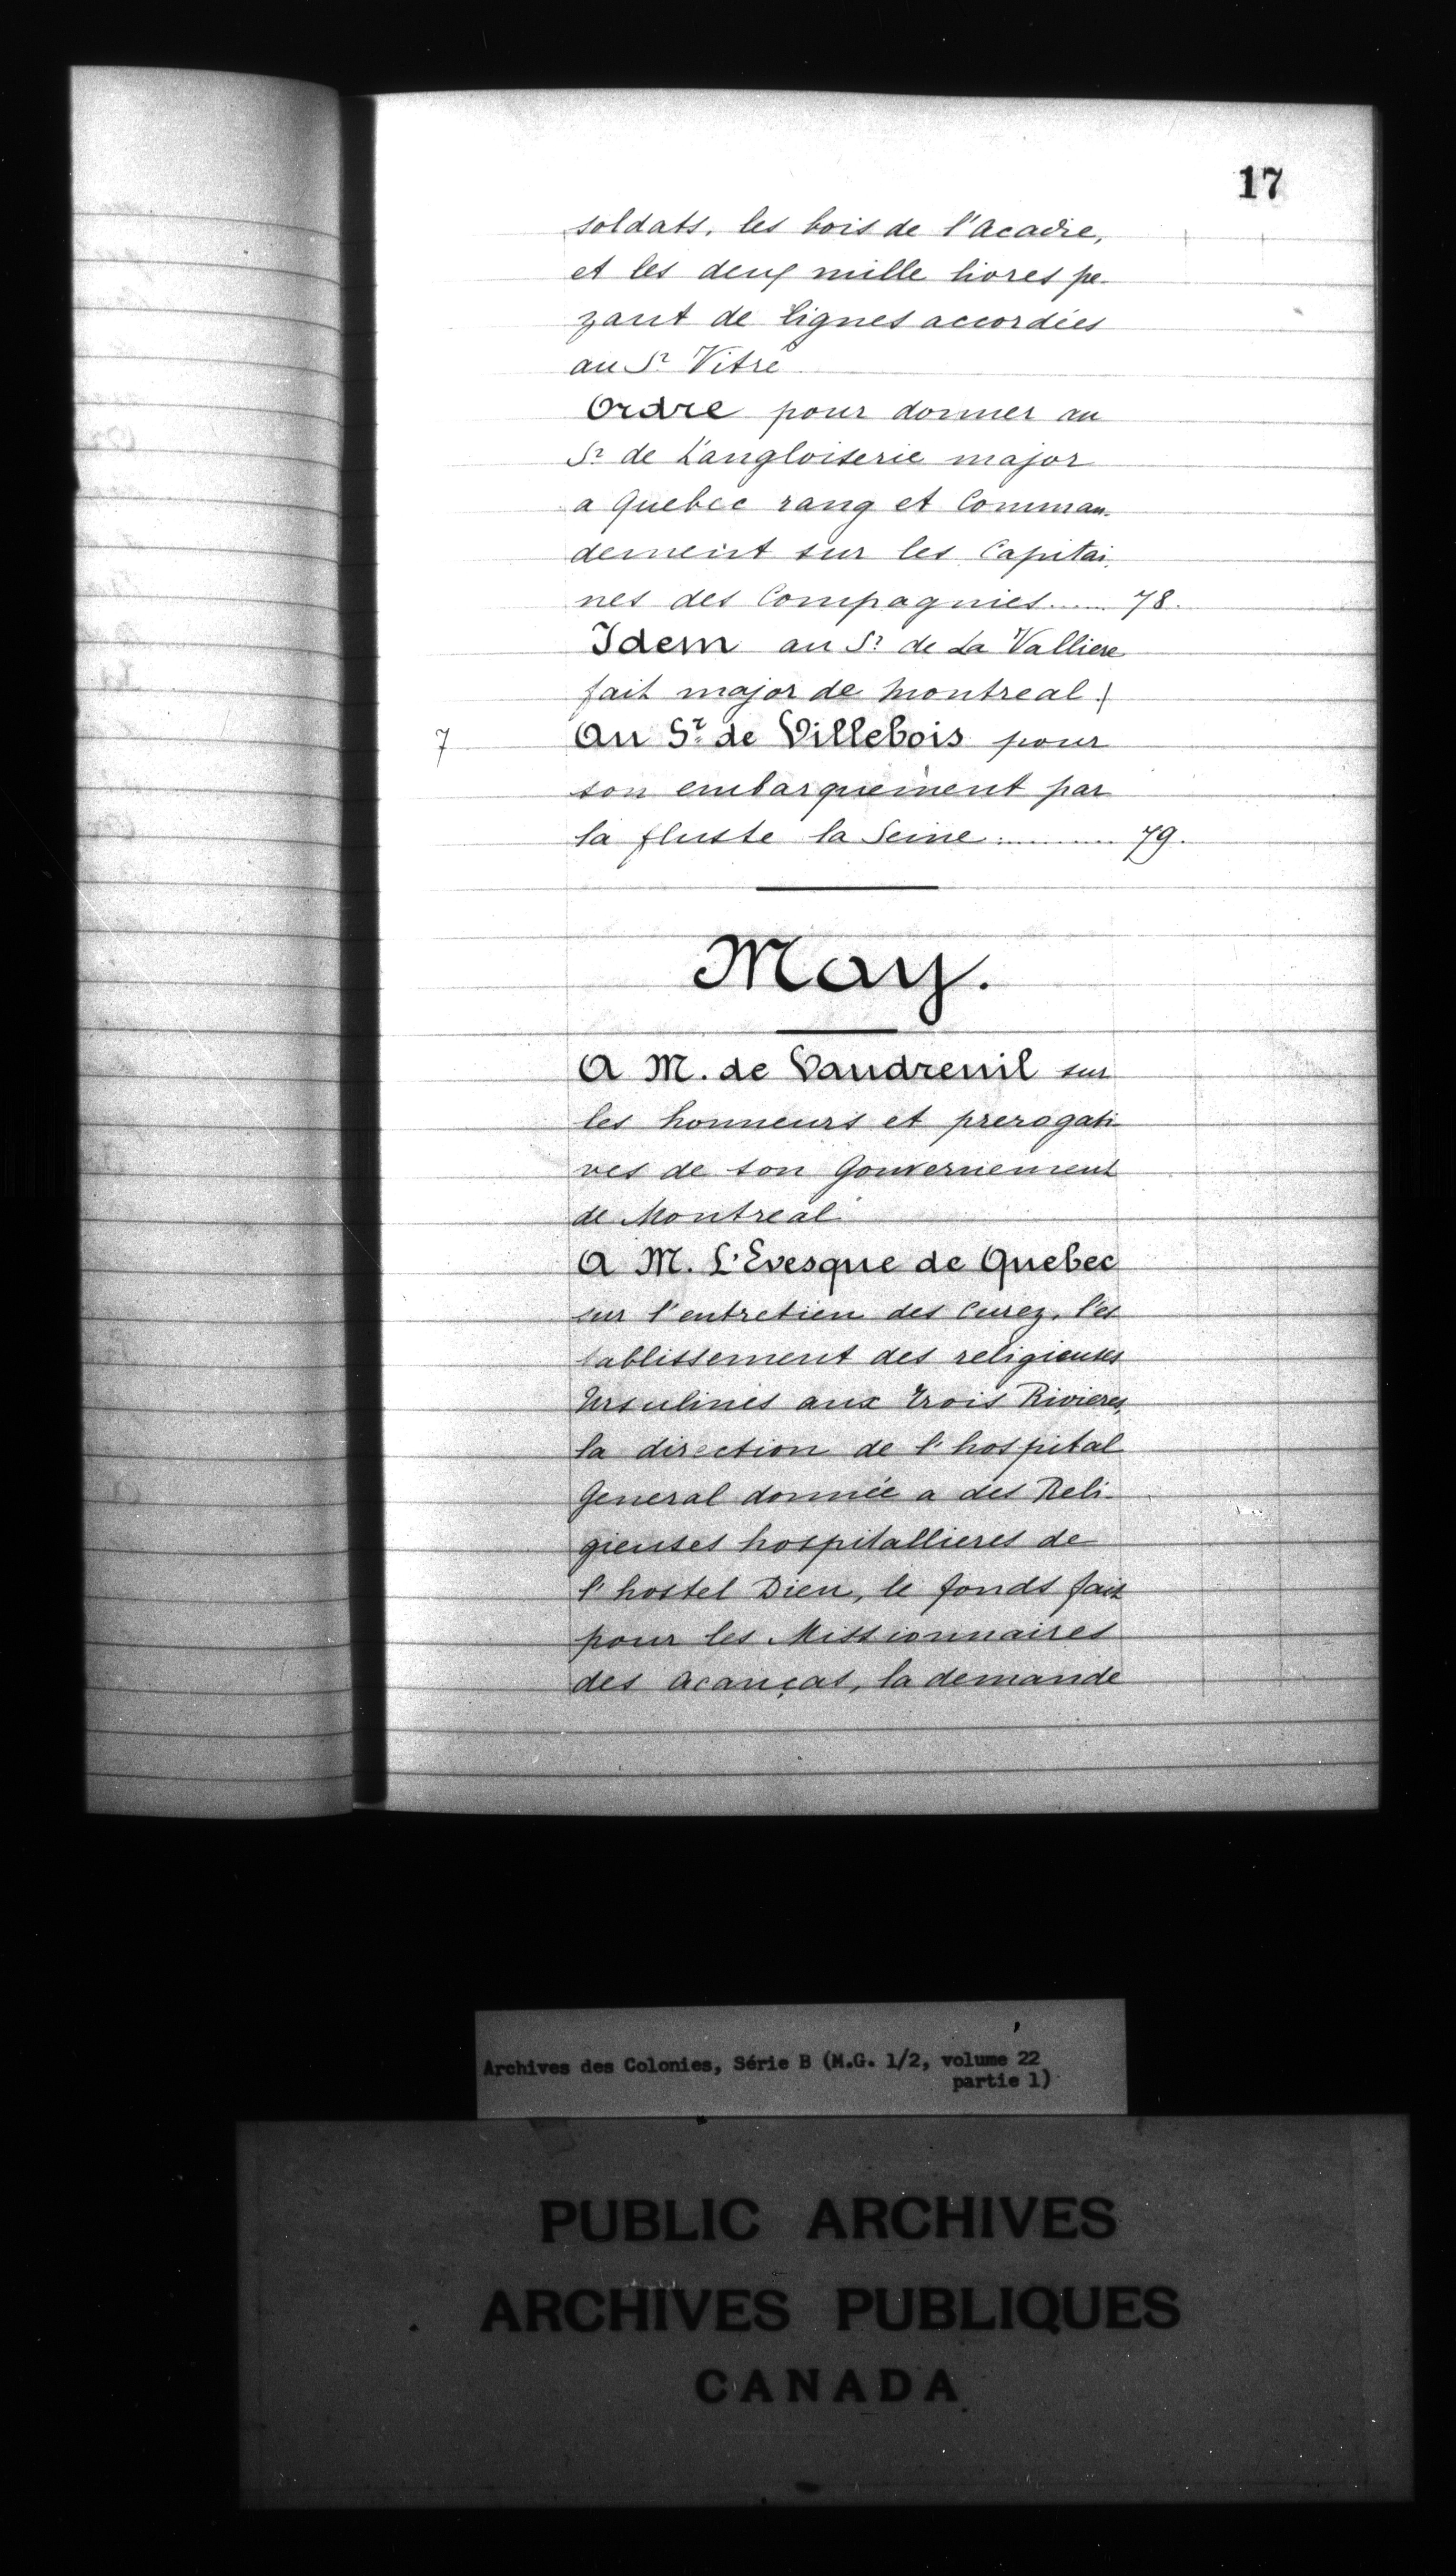 17
soldats, les bois de l'Acadie,
et les deux mille livres pe-
zant de lignes accordées
au Sr Vitré
Ordre pour donner au
Sr de L'angloiserie major
a Quebec rang et Comman-
dement sur les Capitai-
nes des Compagnies..... 78.
Idem au Sr de La Valliere
fait major de Montreal.
7 Au Sr de Villebois pour
son embarquement par
la fluste la Seine.......... 79.
May.
A M. de Vaudreuil sur
les honneurs et prerogati-
ves de son Gouvernement
de Montreal.
A M. L'Evesque de Quebec
sur l'entretien des Curez, l'es
tablissement des religieuses
Ursulines aux trois Rivieres,
la direction de l'hospital
General donnée a des Reli-
gieuses hospitallieres de
l'hostel Dieu, le fonds fait
pour les Missionnaires
des Acanças, la demande
Archives des Colonies, Série B (M.G. 1/2, volume 22
partie 1)
PUBLIC ARCHIVES
ARCHIVES PUBLIQUES
CANADA